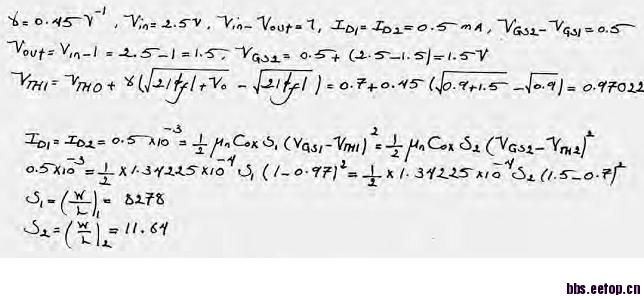 γ=0.45 V⁻¹, Vin=2.5V, Vin-Vout=1, ID1=ID2=0.5 mA, VGS2-VGS1=0.5
Vout=Vin-1=2.5-1=1.5, VGS2=0.5+(2.5-1.5)=1.5V
VTH1=VTH0+γ(√(2|φf|+V0)-√(2|φf|))=0.7+0.45(√(0.9+1.5)-√0.9)=0.97022
ID1=ID2=0.5×10⁻³=1/2 μnCox S1(VGS1-VTH1)²=1/2 μnCox S2(VGS2-VTH2)²
0.5×10⁻³=1/2×1.34225×10⁻⁴ S1(1-0.97)²=1/2×1.34225×10⁻⁴ S2(1.5-0.7)²
S1=(W/L)1=8278
S2=(W/L)2=11.64
bbs.eetop.cn